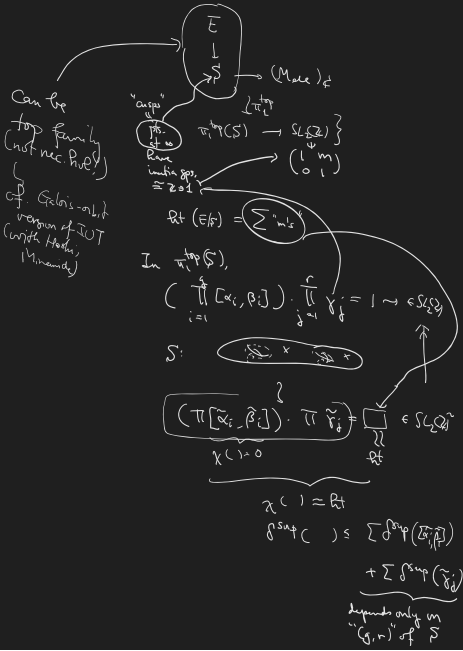 E
↓
S → (M_ell)_ℂ
Can be
top family
(not nec. hol!)
cf. Galois-orbit
version of IUT
(with Hoshi,
Minamide)
"cusps"
pts. at ∞
have
inertia gps.
≅ ℤ∋1
π₁^top
π₁^top(S) → SL₂(ℤ)
(1 m
0 1)
ht (E/S) = Σ "m"s
In π₁^top(S),
( ∏_{i=1}^{g} [α_i, β_i]) · ∏_{j=1}^{r} γ_j = 1 ⇝ ∈ SL₂(ℤ)
S:
(∏[α̃_i, β̃_i]) · ∏ γ̃_j = □ ∈ SL₂(ℤ)~
χ( )=0
ht
χ( ) = ht
δ^sup( ) ≤ Σ δ^sup([α̃_i, β̃_i])
+ Σ δ^sup(γ̃_j)
depends only on
"(g,r)" of S